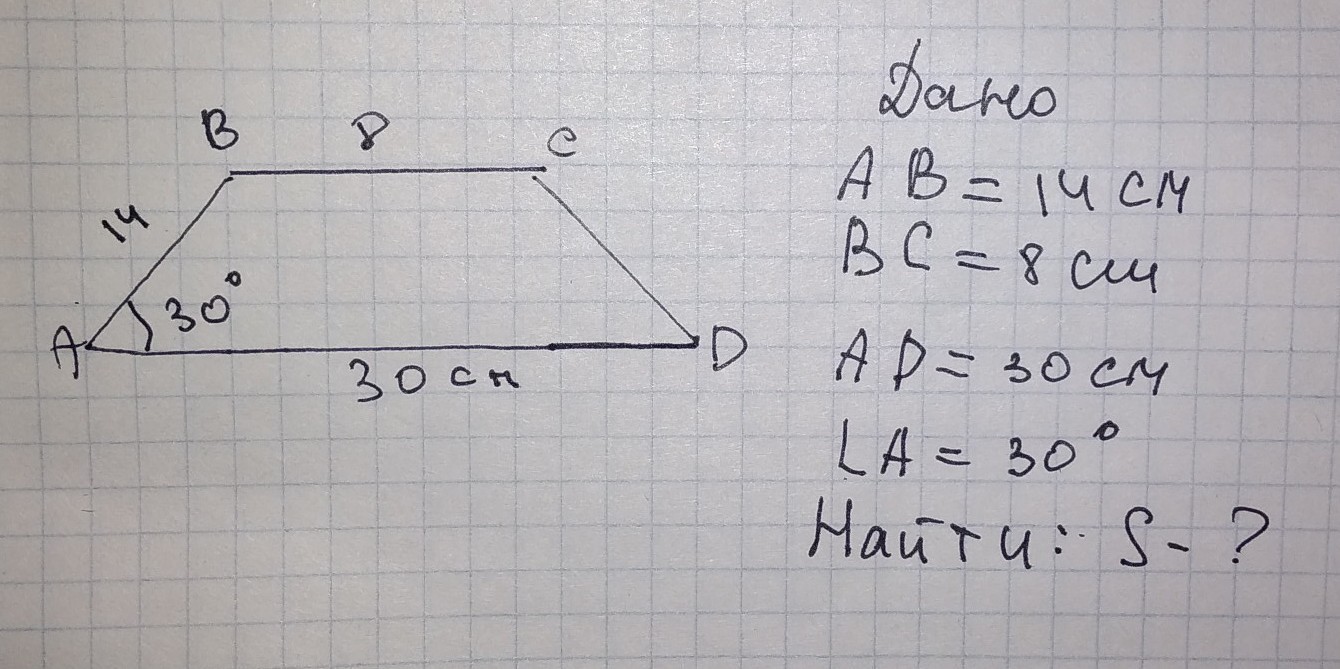 B 8 C
14
30°
A D
30 см
Дано
AB = 14 см
BC = 8 см
AD = 30 см
∠A = 30°
Найти: S - ?